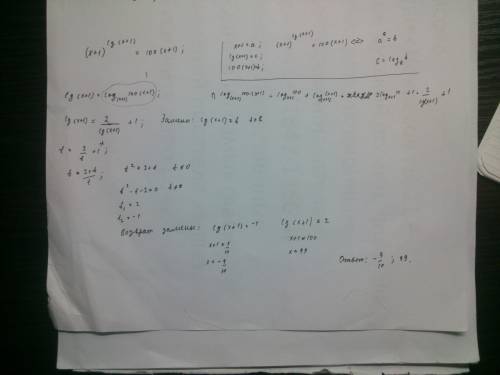 (x+1)^{lg(x+1)} = 100(x+1);
x+1=a; (x+1)^{lg(x+1)} = 100(x+1) <=> a^c = b
lg(x+1)=c;
100(x+1)=b; c = log_a b
lg(x+1) = log_{(x+1)} 100(x+1);
1) log_{(x+1)} 100(x+1) = log_{(x+1)} 100 + log_{(x+1)} (x+1) = 2 log_{(x+1)} 10 + 1 = 2/lg(x+1) + 1
lg(x+1) = 2/lg(x+1) + 1; Замена: lg(x+1)=t, t≠0
t = 2/t + 1;
t = 2+t/t; t² = 2+t t≠0
t²-t-2=0 t≠0
t₁ = 2
t₂ = -1
Возврат замены: lg(x+1) = -1 lg(x+1) = 2
x+1 = 1/10 x+1 = 100
x = -9/10 x = 99
Ответ: -9/10; 99.